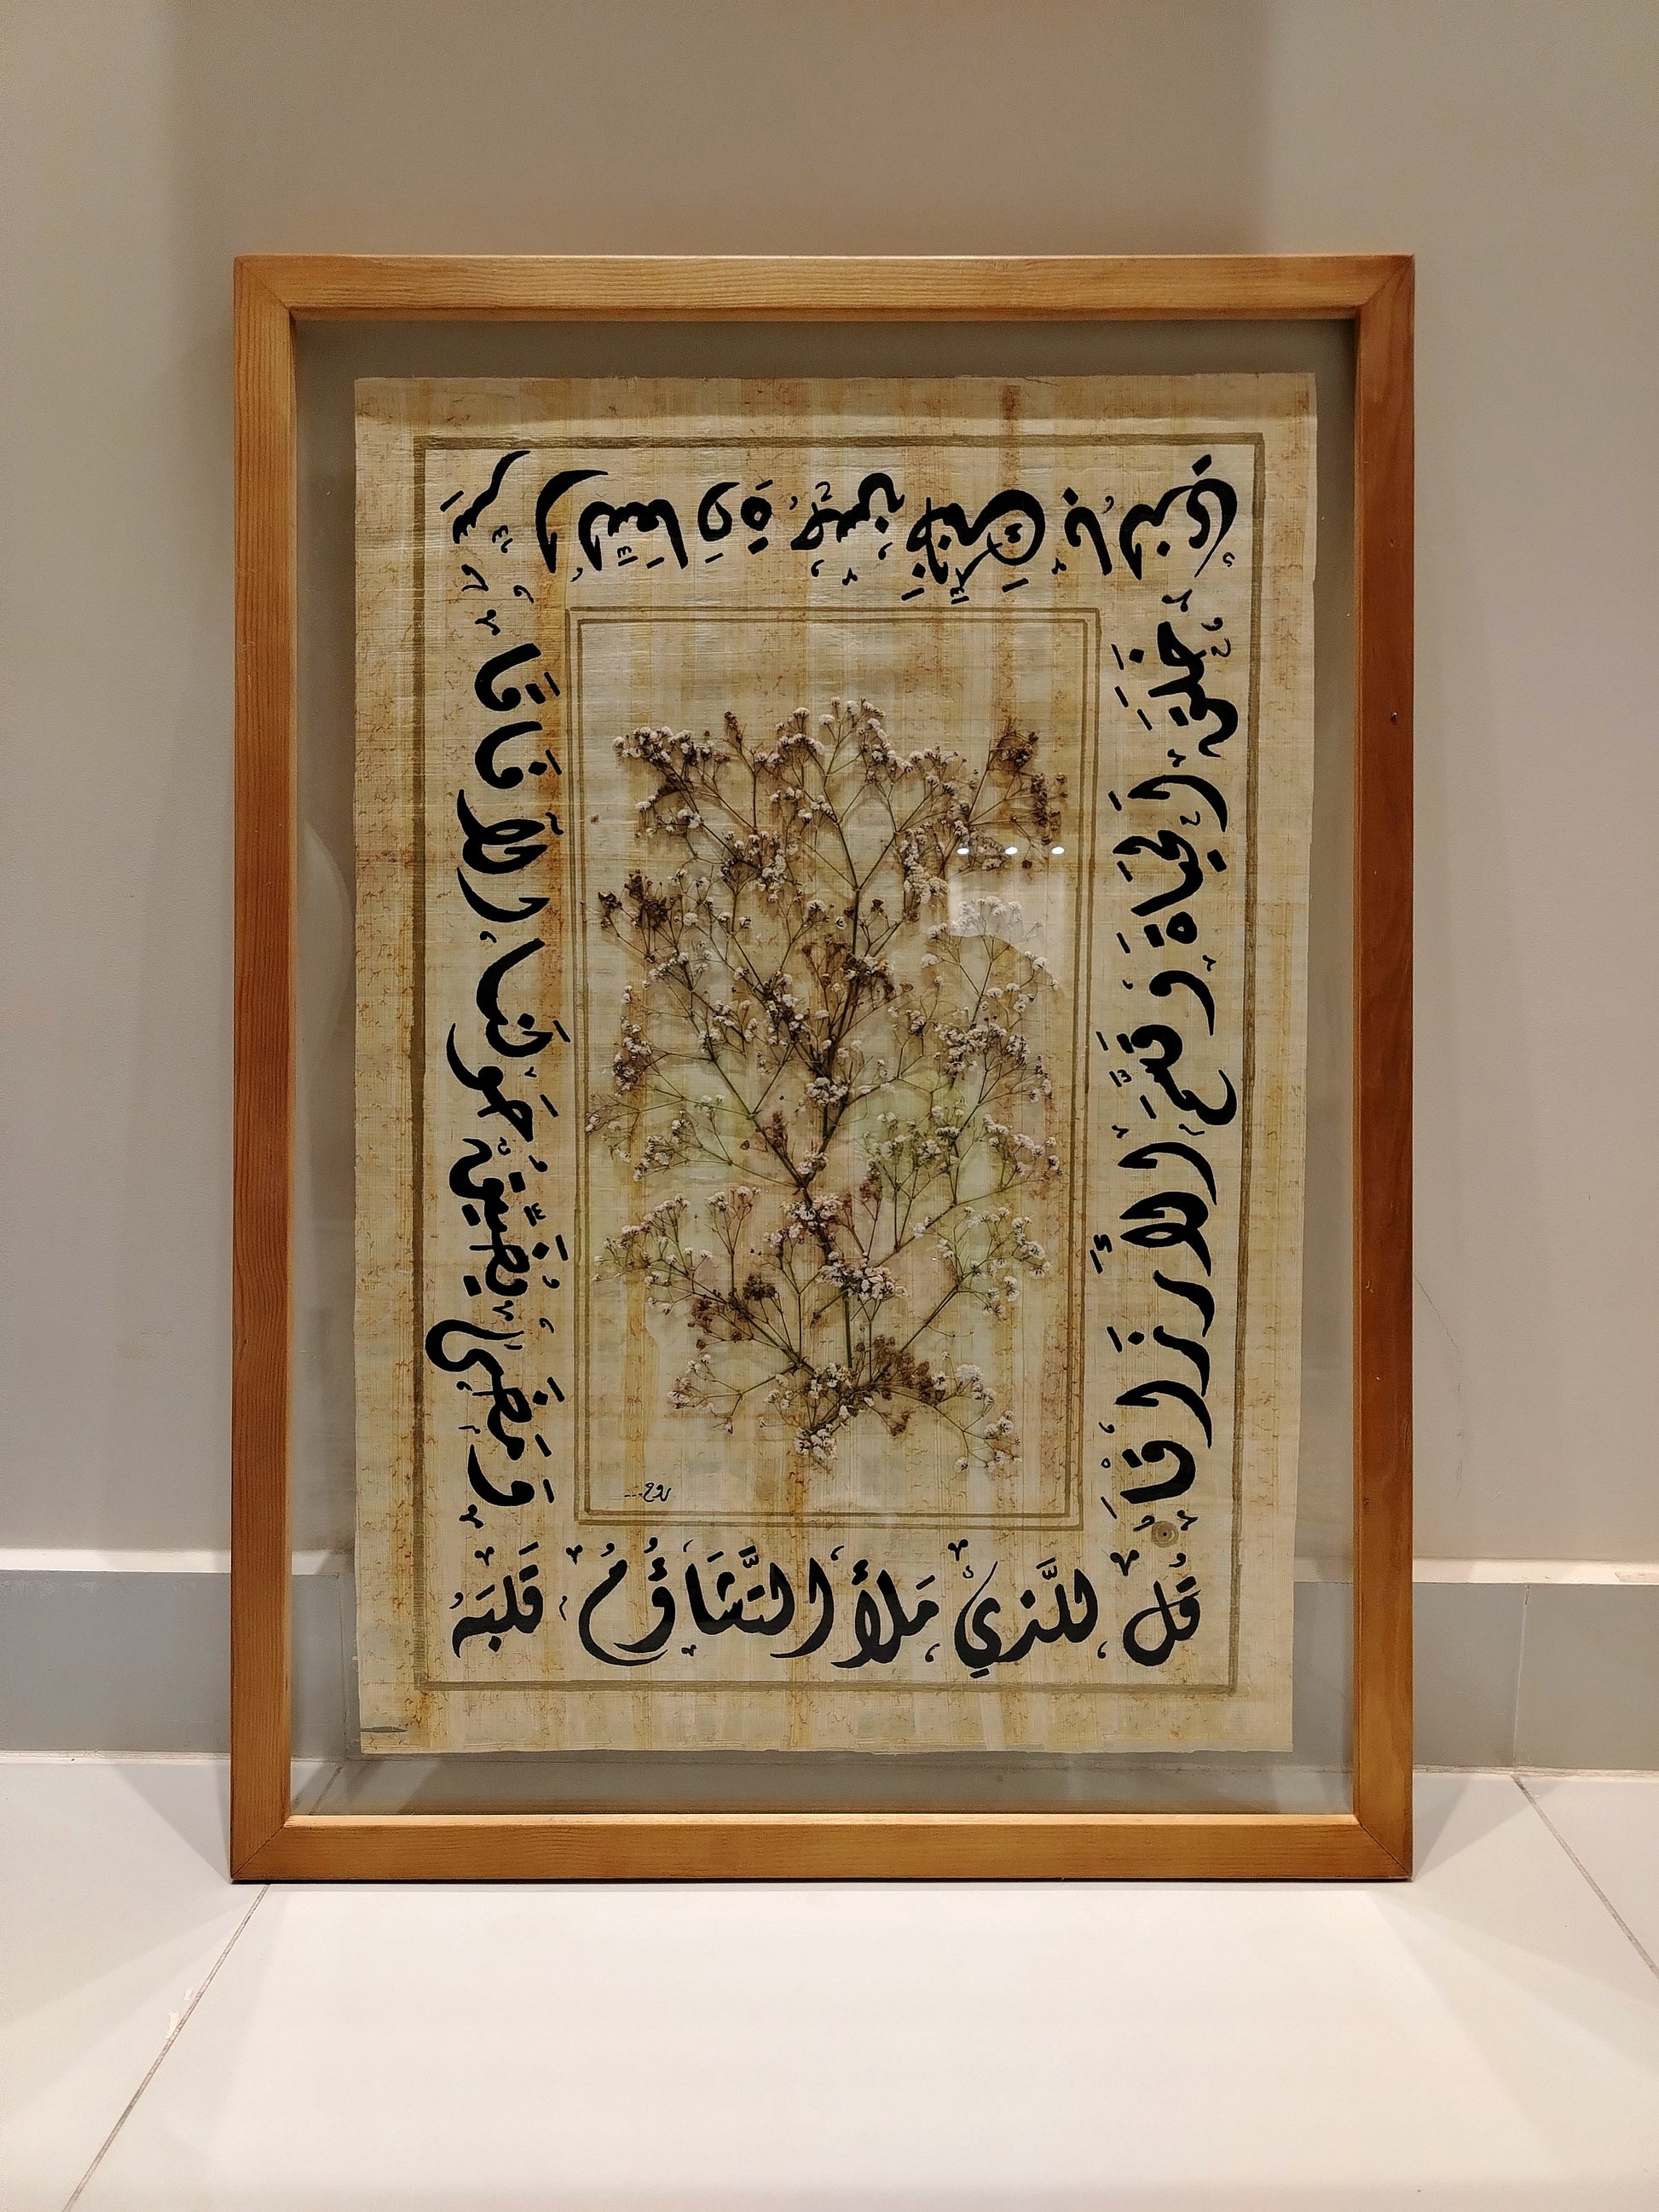 قُل للَّذِي مَلأَ التَّشَاؤُمُ قَلبَهُ
وَمَضَى يُضَيِّقُ حَولَنَا الآفَاقَا
سِرُّ السَّعَادَةِ حُسنُ ظَنِّكَ بِالَّذِي
خَلَقَ الحَيَاةَ وَقَسَّمَ الأَرزَاقَا
روح...